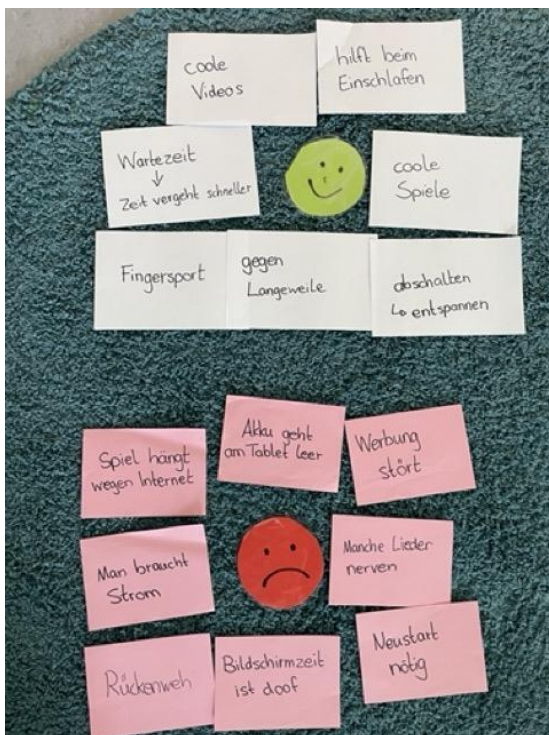 coole
Videos
hilft beim
Einschlafen
Wartezeit
↓
Zeit vergeht schneller
coole
Spiele
Fingersport
gegen
Langeweile
abschalten
↳ entspannen
Akku geht
am Tablet leer
Spiel hängt
wegen Internet
Werbung
stört
Man braucht
Strom
Manche Lieder
nerven
Rückenweh
Bildschirmzeit
ist doof
Neustart
nötig